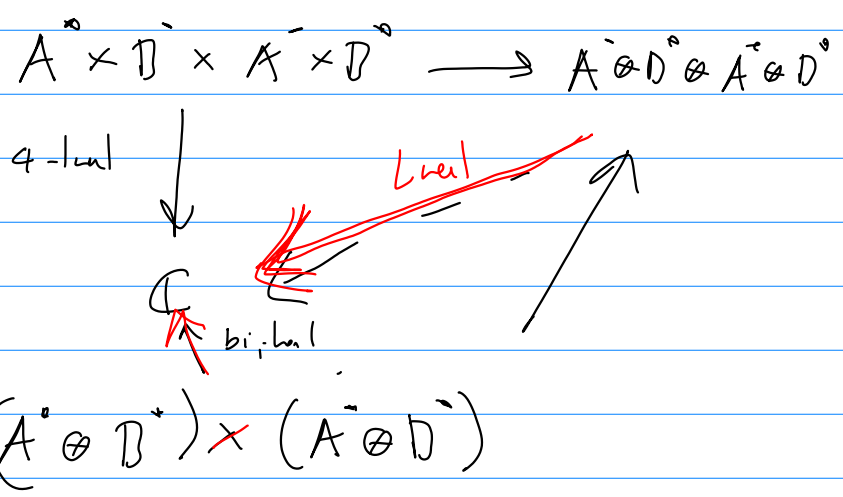 A* × B* × A* × B* ⟶ A* ⊗ B* ⊗ A* ⊗ B*
4-linear
Linear
ℂ
bilinear
(A* ⊗ B*) × (A* ⊗ B*)